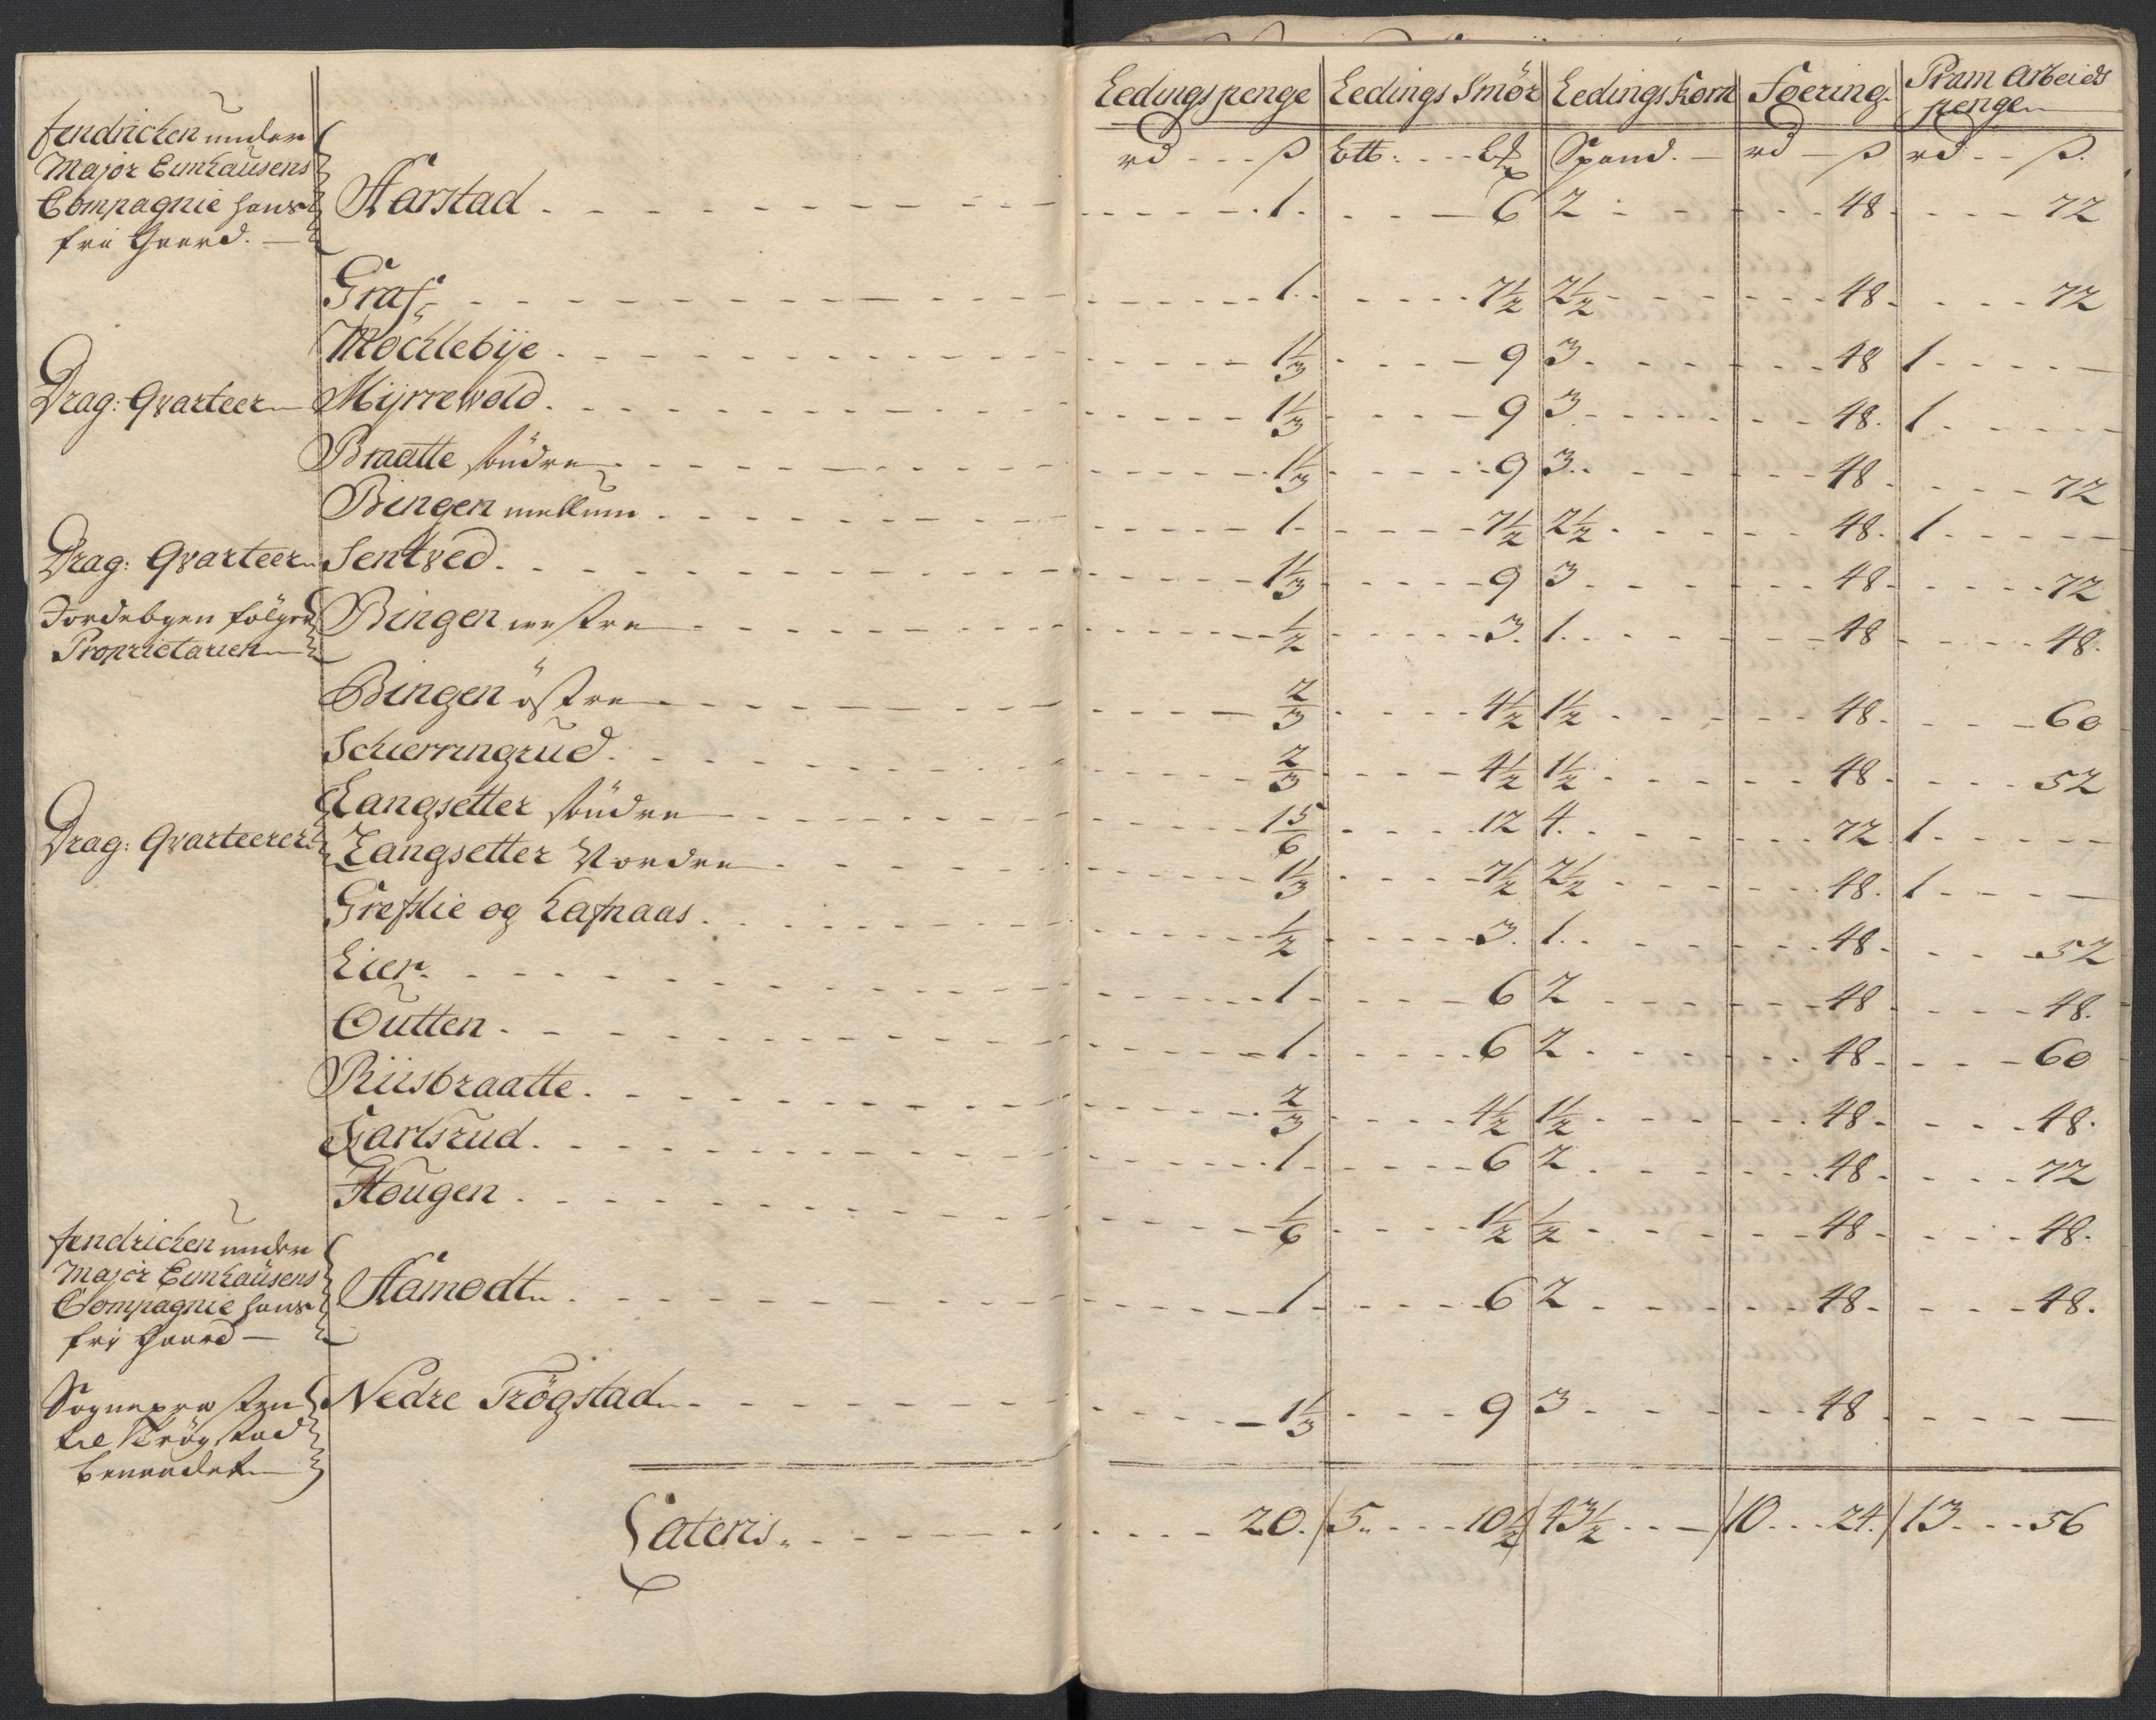 Leedings penge | Leedings Smör | Leedings Korn | Foering | Pram Arbeids penge
rd - - - ß | btt: - - - b℔ | Spand. - | rd - ß | rd - - ß.
fendrichen under
Major Eimhausens
Compagnie hans
frie Gaard. —
Harstad - - - 1. | 6 | 2 | 48. | 72
Graf - - - 1. | 7½ | 2½ | 48. | 72
Mochlebije - - - 1⅓ | 9 | 3. | 48 | 1 - - -
Drag: Qvarteer Mijrrewold - - - 1⅓ | 9 | 3 | 48. | 1 - - -
Braatte söndre - - - 1⅓ | 9 | 3. | 48. | 72
Bingen mellum - - - 1. | 7½ | 2½ | 48. | 1 - - -
Drag: Qvarteer Sentved - - - 1⅓ | 9 | 3 | 48. | 72
Jordebogen følger
Proprietarien
Bingen westre - - - ½ | 3. | 1. | 48 | 48.
Bingen östre - - - ⅔ | 4½ | 1½ | 48. | 60
Schierringrud - - - ⅔ | 4½ | 1½ | 48. | 52
Langsetter söndre - - - 1⅚ | 12 | 4. | 72 | 1 - - -
Drag: Qvarteerer Langsetter Nordre - - - 1⅓ | 7½ | 2½ | 48. | 1 - - -
Grefslie og Lafnaas - - - ½ | 3. | 1. | 48. | 52
Lier - - - 1. | 6 | 2 | 48 | 48.
Outten - - - 1. | 6 | 2 | 48. | 60
Riisbraatte - - - ⅔ | 4½ | 1½ | 48. | 48.
Karlsrud - - - 1. | 6 | 2 | 48. | 72
Hougen - - - ⅙ | 1½ | ½ | 48. | 48.
fendrichen under
Major Eimhausens
Compagnie hans
frij Gaard —
Hamodt - - - 1. | 6 | 2 | 48. | 48.
Sognepresten
til Trögstad
beneadet
Nedre Trögstad - - - 1⅓ | 9 | 3 | 48 | - - -
Lateris - - - 20. | 5 - - - 10½ | 43½ | 10 - - - 24. | 13 - - - 56